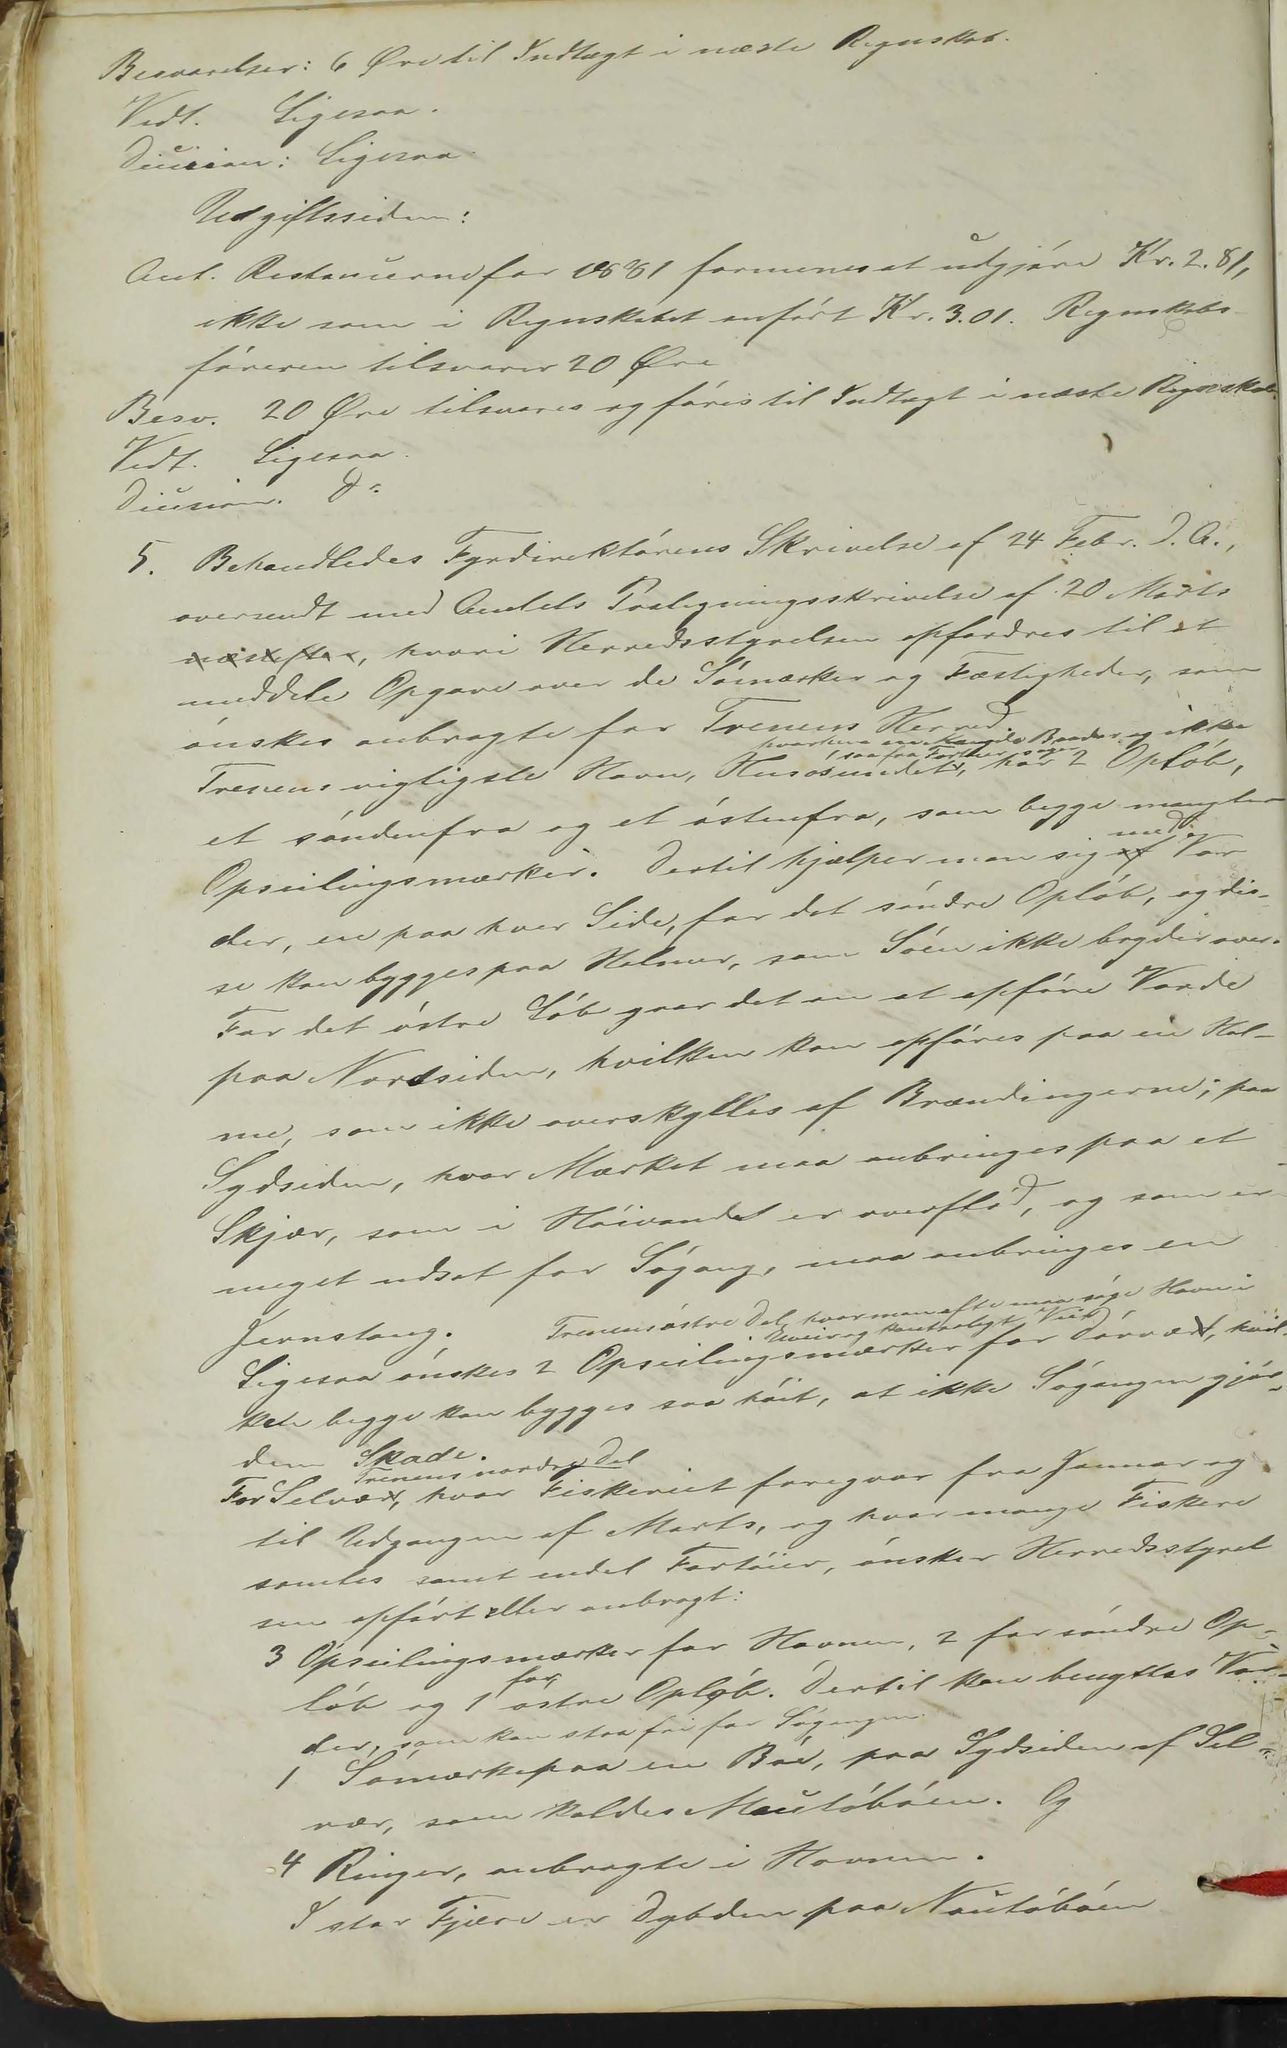 Besvarelser: 6 Øre til Indtægt i næste Regnskab.
Vedt. Ligesaa.
Dicision: Ligesaa.
Udgiftssiden:
Ant. Restancerne for 1881 formenes at udgjøre Kr. 2.81,
ikke som i Regnskabet anført Kr. 3.01. Regnskabs-
føreren tilsvarer 20 Øre
Besv. 20 Øre tilsvares og føres til Indtægt i næste Regnskab.
Vedt. Ligesaa.
Dicision. Do
5. Behandledes Fyrdirektørens Skrivelse af 24 Febr. d. A.,
oversendt med Amtets Paategningsskrivelse af 20 Marts
hvori Herredsstyrelsen opfordres til at
meddele Opgave over de Sömærker og Fæstigheder, som
ønskes anbragte for Trenens Herred
hvorhen en Mængde Baader og ikke
saa faa Fartøier søger
Trenens vigtigste Havn, Husøsundet, har 2 Opløb,
et søndenfra og et østenfra, som begge mangler
Opseilingsmærker. Dertil hjælper man sig med Var
der, en paa hver Side, for det søndre Opløb, og dis-
se kan bygges paa Holmer, som Søen ikke bryder over.
For det østre Løb gaar det an at opføre Varde
paa Nordsiden, hvilken kan opføres paa en Hol-
me, som ikke overskylles af Brændingerne; paa
Sydsiden, hvor Mærket maa anbringes paa et
Skjær, som i Høivandet er overflød, og som er
meget udsat for Søgang, maa anbringes en
Jernstang.
Trenens østre Del, hvor man ofte maa søge Havn i
Uveir og
Ligesaa ønskes 2 Opseilingsmærker for Dørvær, hvil
ken begge kan bygges saa høit, at ikke Søgangen gjør
dem Skade.
Trenens nordre Del
For Selvær, hvor Fiskeriet foregaar fra Januar og
til Udgangen af Marts, og hvor mange Fiskere
samles samt endel Fartøier, ønsker Herredsstyrel
sen opført eller anbragt:
3 Opseilingsmærker for Havnen, 2 for søndre Op-
løb og 1 for østre Opløb. Dertil kan benyttes Var-
der, som kan staa fri for Søgangen
1 Sømærke paa en Bøe, paa Sydsiden af Sel-
vær, som kaldes Nautøbøen. Og
4 Ringer, anbragte i Havnen.
I stor Fjære er Dybden paa Nautøbøen